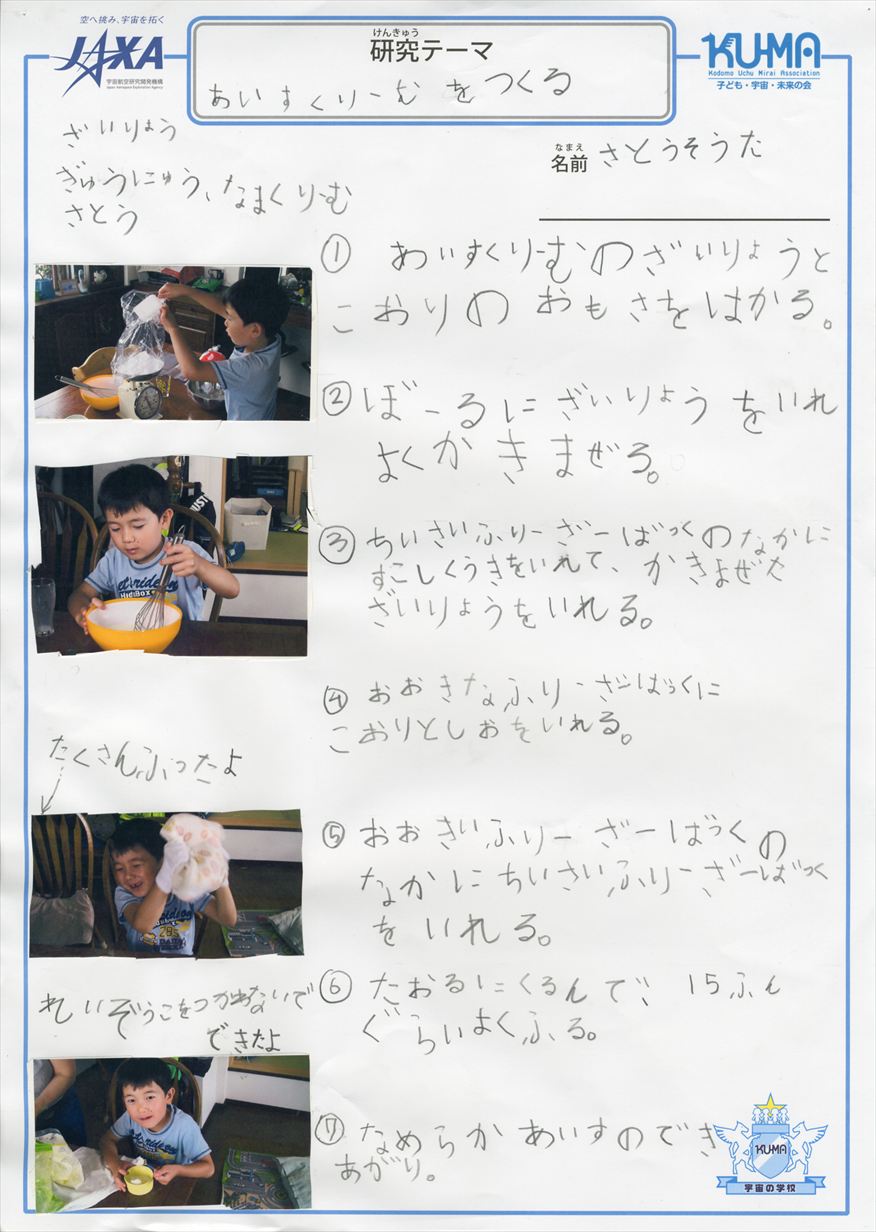 空へ挑み、宇宙を拓く
JAXA
宇宙航空研究開発機構
Japan Aerospace Exploration Agency
けんきゅう
研究テーマ
あいすくりーむをつくる
KU-MA
Kodomo Uchu Mirai Association
子ども・宇宙・未来の会
なまえ
名前 さとうそうた
ざいりょう
ぎゅうにゅう、なまくりーむ
さとう
① あいすくりーむのざいりょうと
こおりのおもさをはかる。
② ぼーるにざいりょうをいれ
よくかきまぜる。
③ ちいさいふりーざーばっくのなかに
すこしくうきをいれて、かきまぜた
ざいりょうをいれる。
④ おおきなふりーざーばっくに
こおりとしおをいれる。
たくさんふったよ
⑤ おおきいふりーざーばっくの
なかにちいさいふりーざーばっく
をいれる。
れいぞうこをつかわないで
できたよ
⑥ たおるにくるんで、15ふん
ぐらいよくふる。
⑦ なめらかあいすのでき
あがり。
KU-MA
宇宙の学校